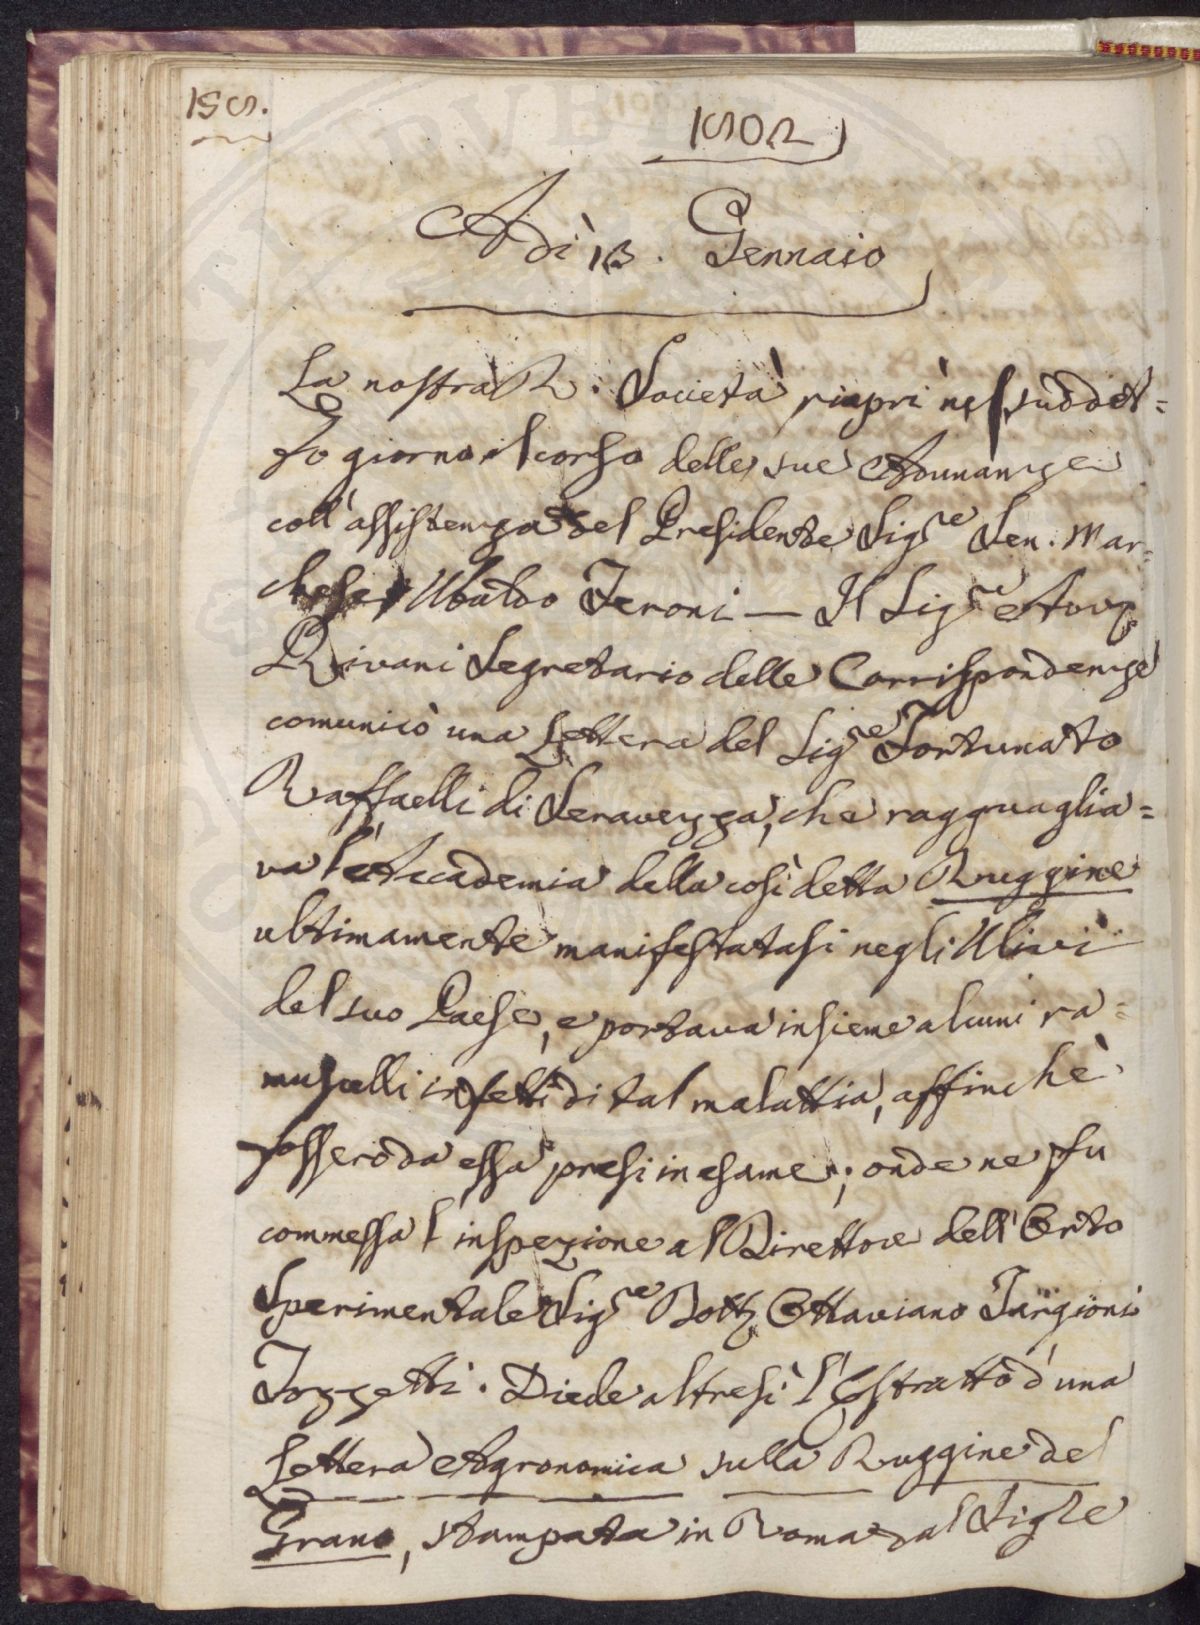 188.
1802
Adì 13. Gennaio
La nostra R. Società riaprì nel suddet=
to giorno il corso delle sue Adunanze
coll'assistenza del Presidente Sig.re Sen. Mar=
chese Ubaldo Feroni — Il Sig.re Avv.
Rivani Segretario delle Corrispondenze
comunicò una Lettera del Sig.re Fortunato
Raffaelli di Seravezza, che ragguaglia=
va l'Accademia della così detta Ruggine
ultimamente manifestatasi negli Ulivi
del suo Paese, e portava insieme alcuni ra=
muscelli infetti di tal malattia, affinchè
fossero da essa presi in esame; onde ne fu
commessa l'inspezione al Direttore dell'Orto
Sperimentale Sig.re Dott. Ottaviano Targioni
Tozzetti. Diede altresì l'Estratto d'una
Lettera Agronomica sulla Ruggine del
Grano, stampata in Roma dal Sig.re